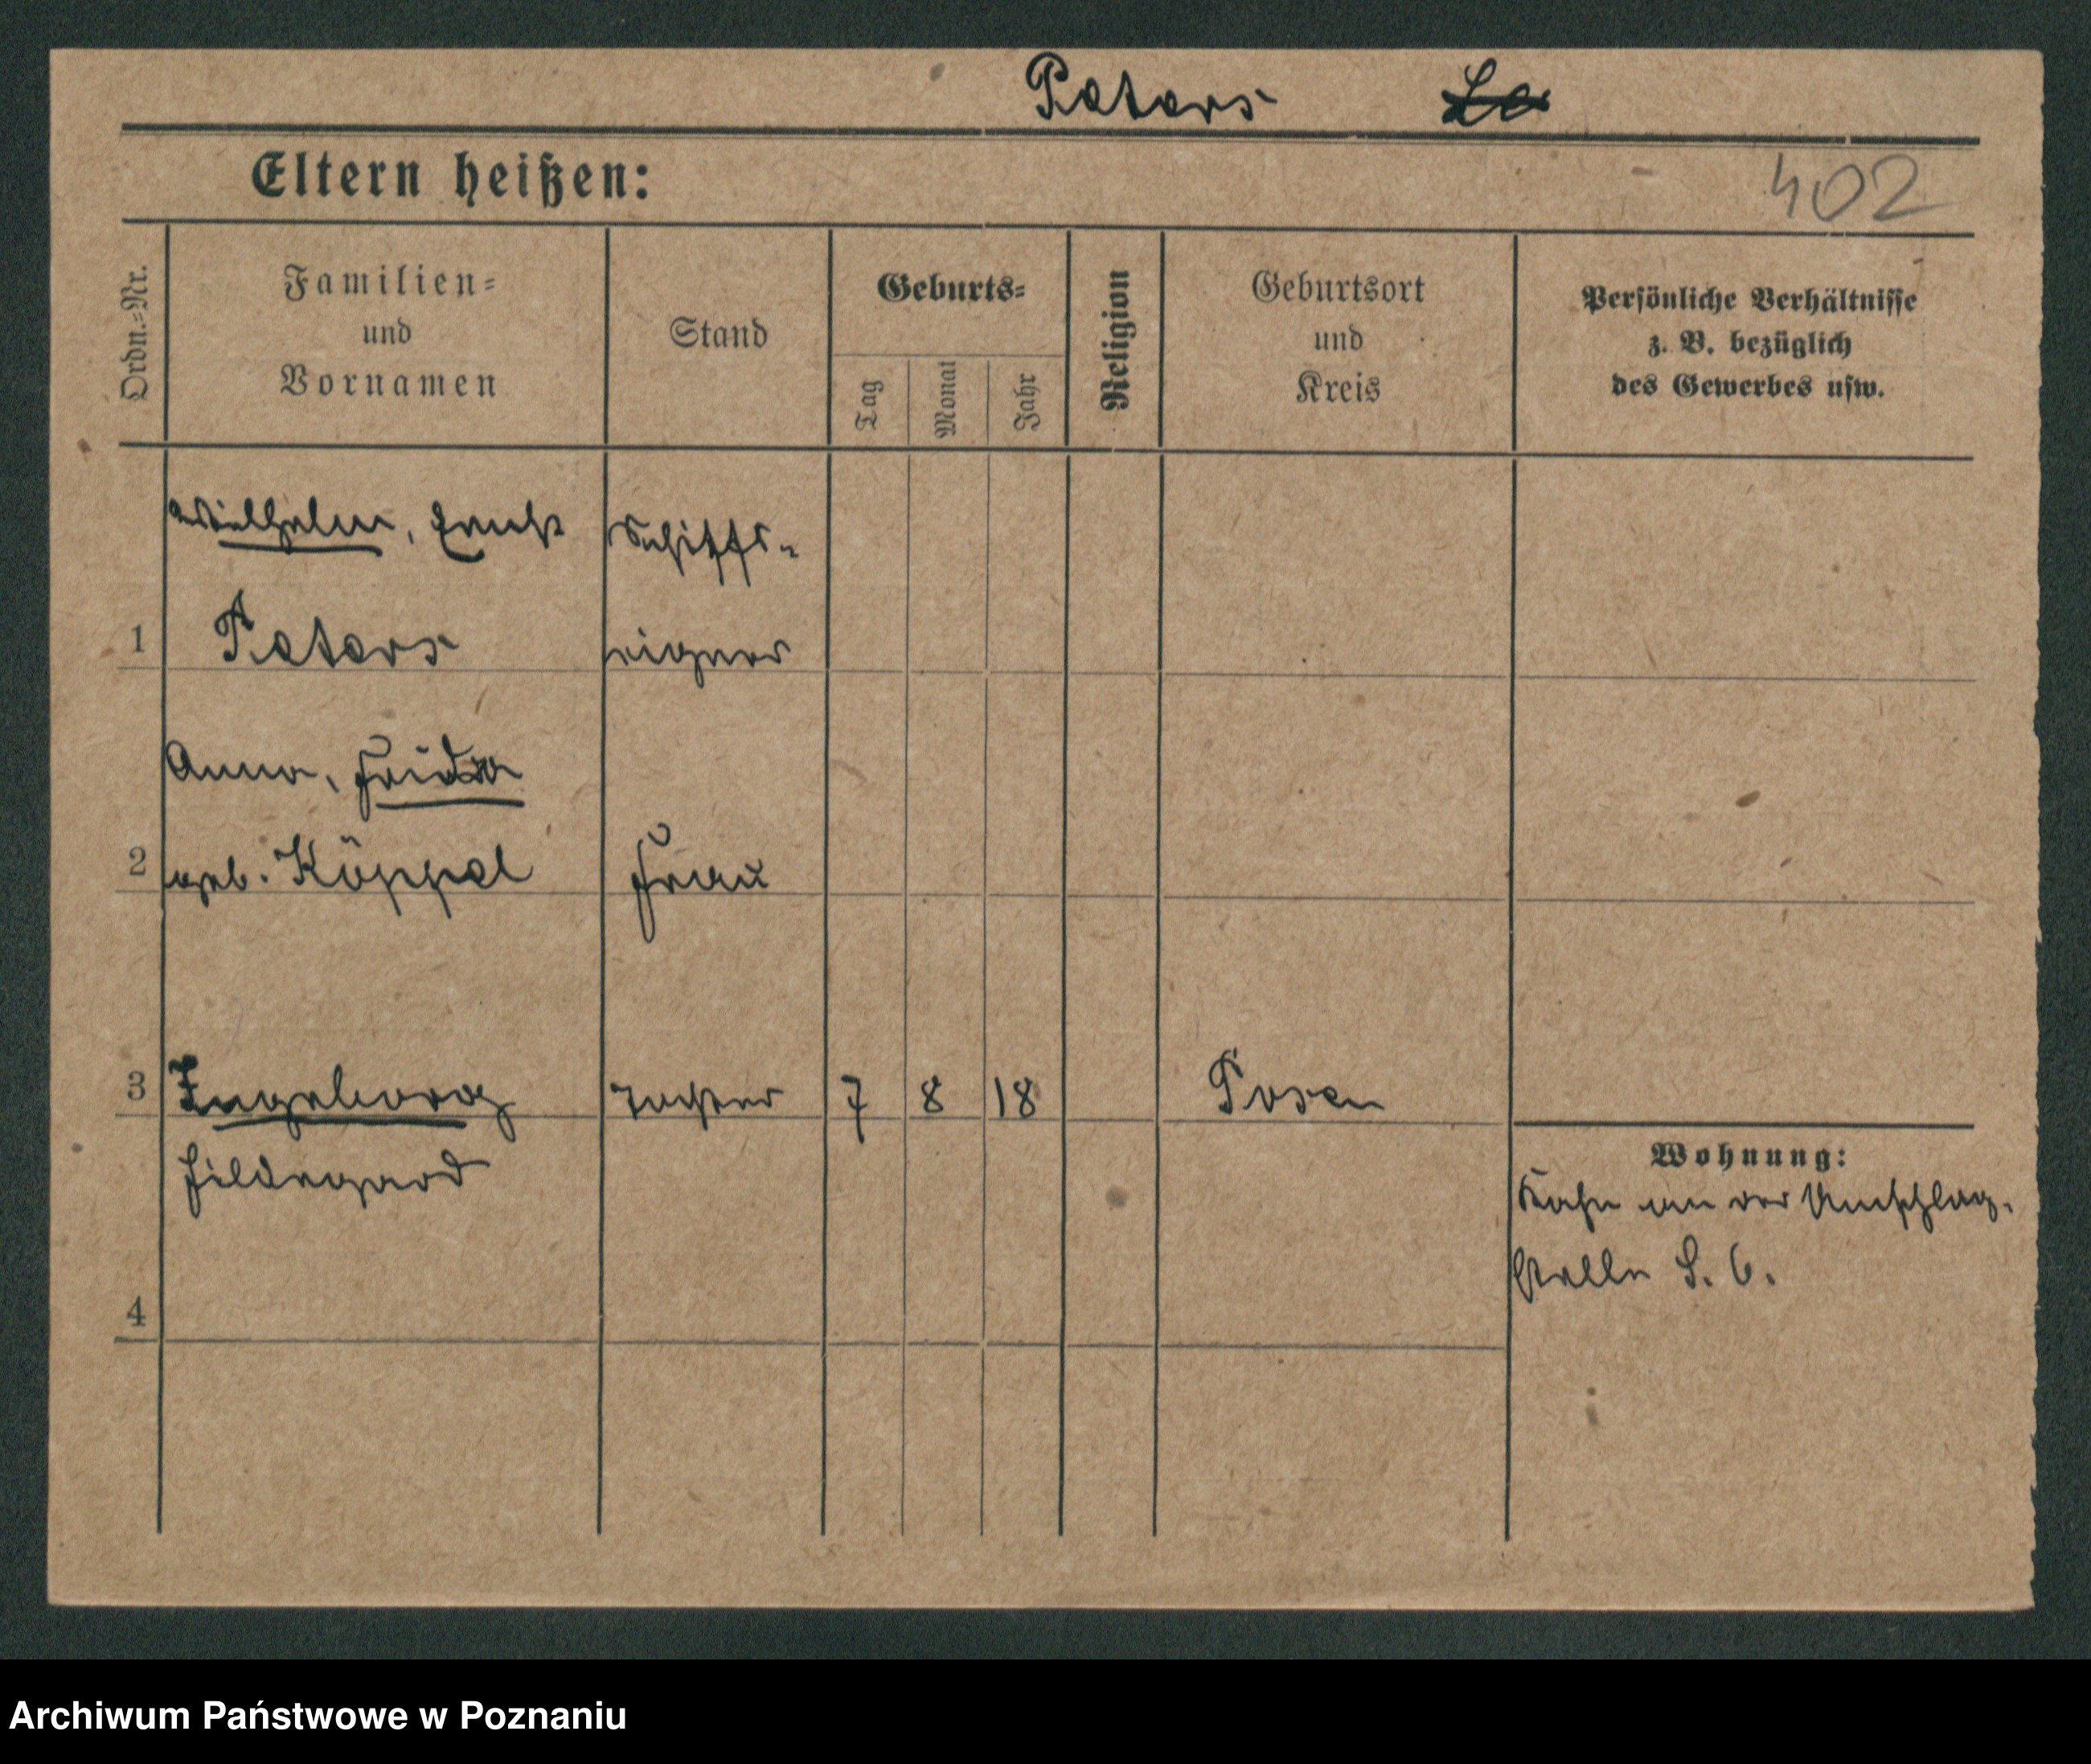 Peters
402
Eltern heißen:
Ordn.=Nr.
Familien=
und
Vornamen
Stand
Geburts=
Tag
Monat
Jahr
Religion
Geburtsort
und
Kreis
Persönliche Verhältnisse
z. B. bezüglich
des Gewerbes usw.
Wilhelm, Ernst
Schiffs-
1 Peters
eigner
Anna, Frida
2 geb. Köppel
Frau
3 Ingeborg
Tochter
7 8 18
Posen
Hildegard
Wohnung:
Kahn an der Umschlag-
stelle S. 6.
4
Archiwum Państwowe w Poznaniu